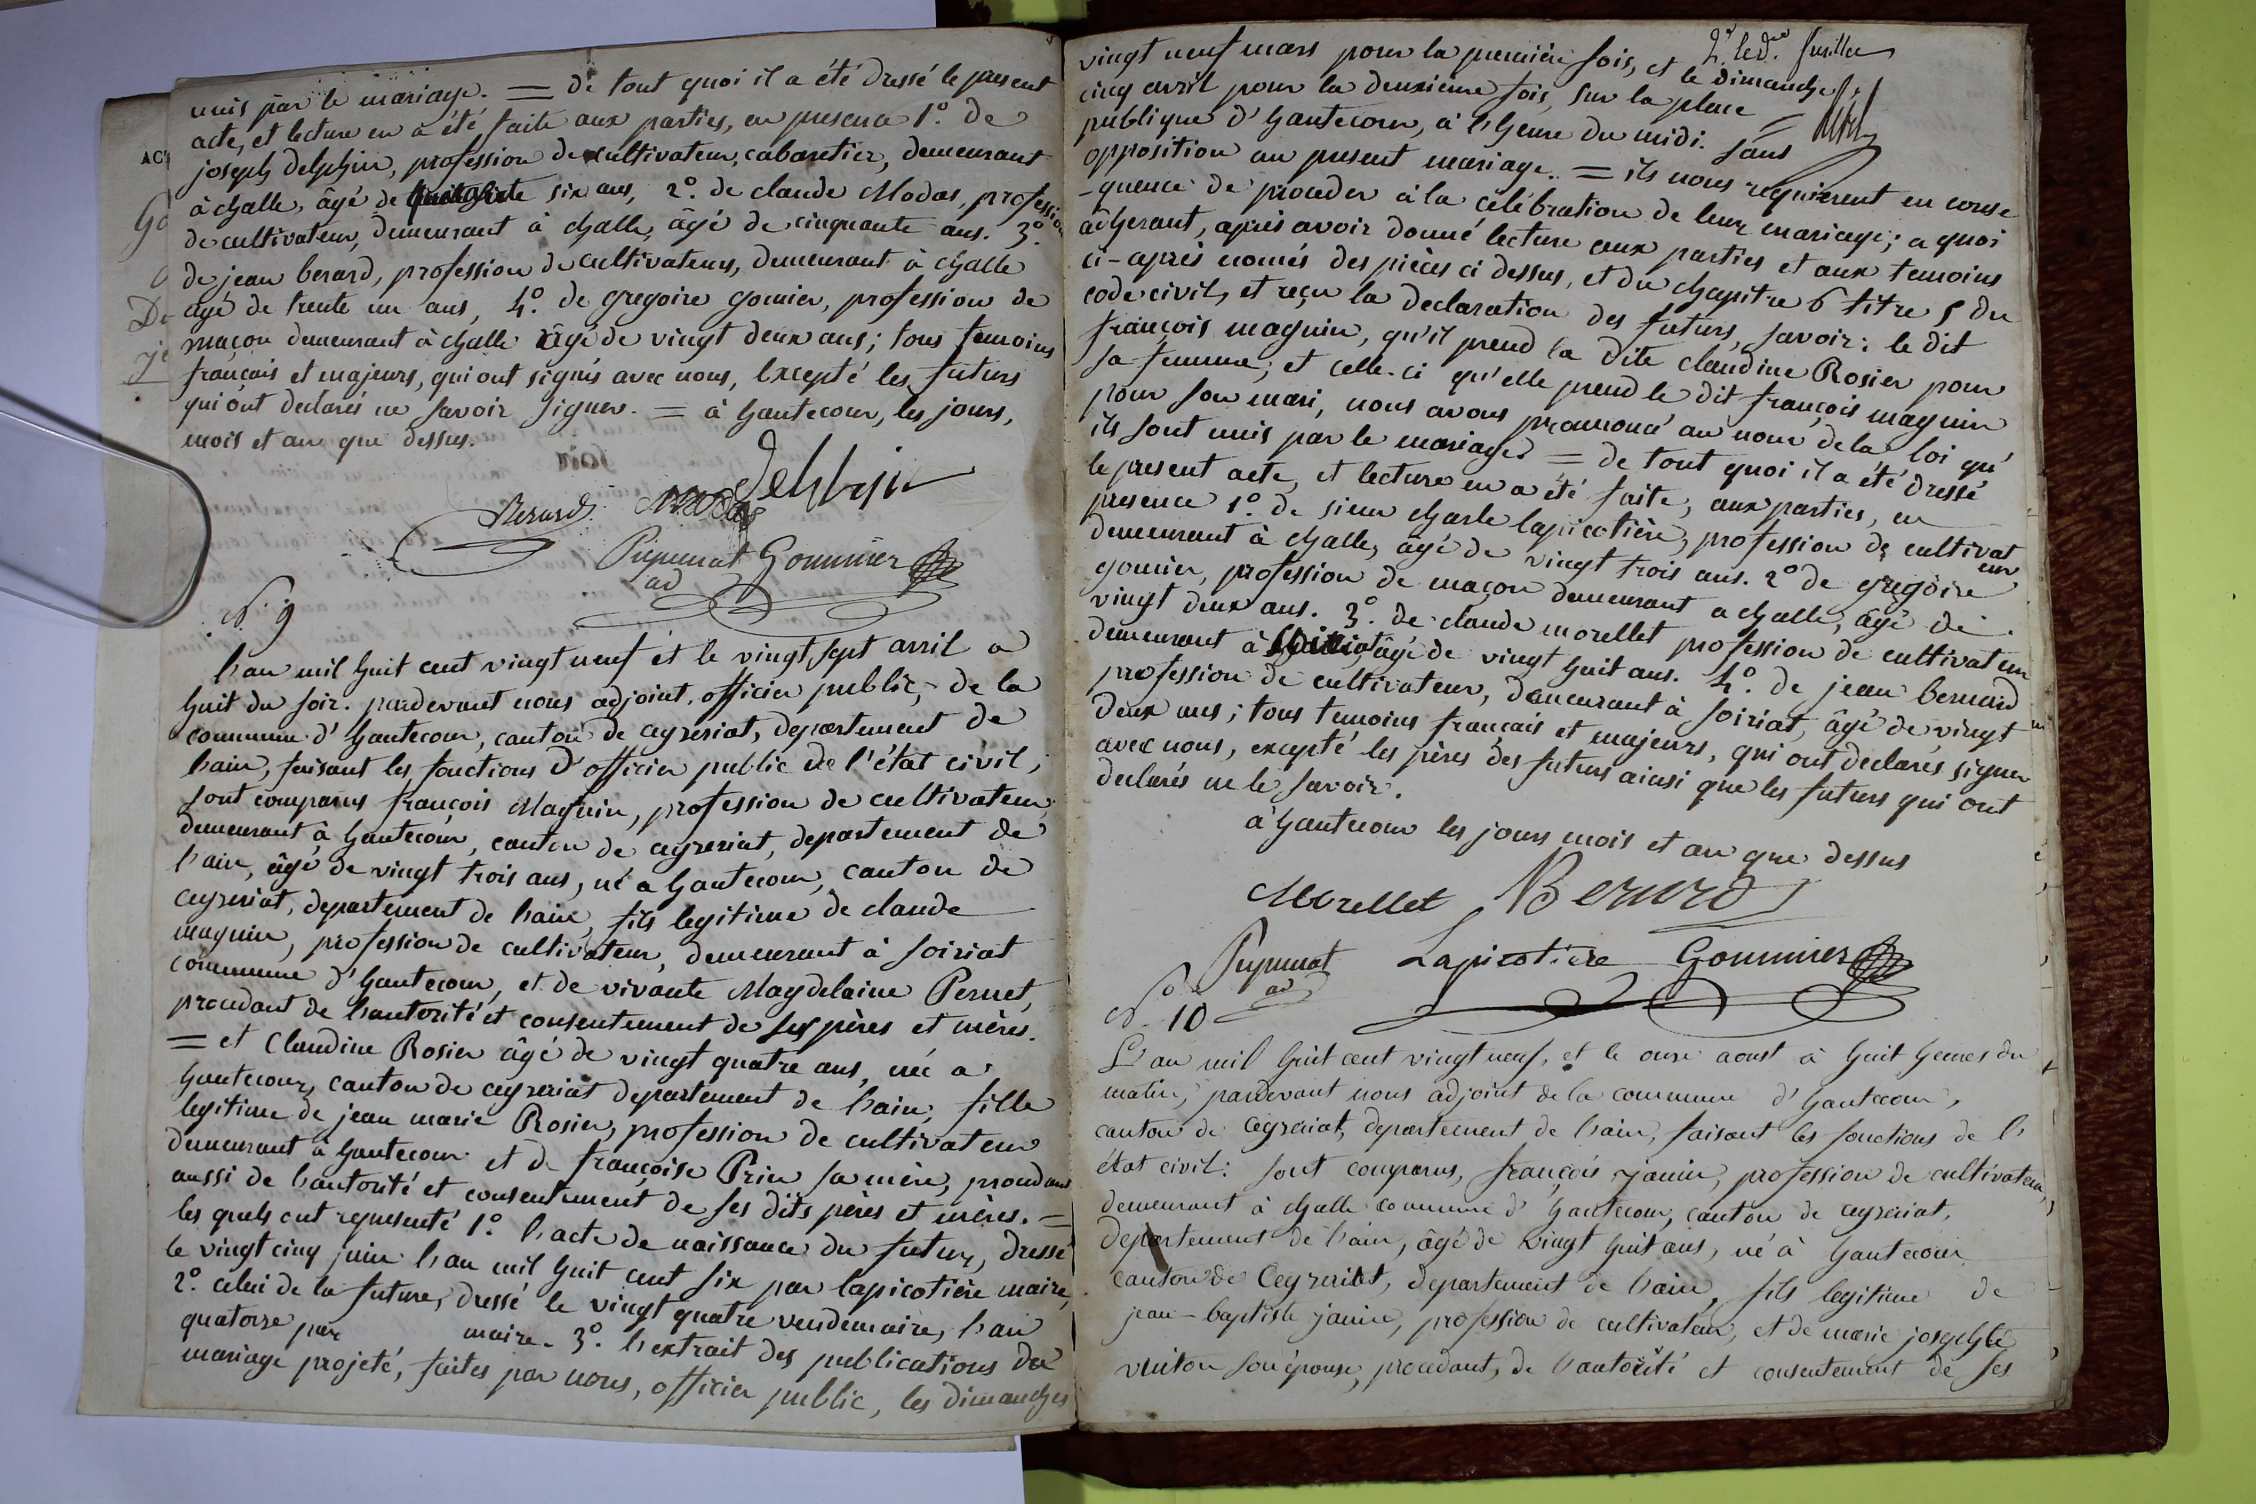 unis par le mariage. = de tout quoi il a été dressé le present
acte, et lecture en a été faite aux parties, en presence 1°. de
joseph delphin, profession de cultivateur, cabaretier, demeurant
à challe, âgé de six ans, 2°. de claude Modas, profession
de cultivateur, demeurant à challe, âgé de cinquante ans. 3°.
de jean berard, profession de cultivateurs, demeurant à challe
âgé de trente un ans, 4°. de gregoire gomier, profession de
maçon demeurant à challe âgé de vingt deux ans; tous temoins
français et majeurs, qui ont signés avec nous, Excepté les futurs
qui ont declarés ne savoir signer. = à hautecour, les jours,
mois et an que dessus.
Delphin
Berard Modas
Pupunat Gommier
ad
N. 9
l'an mil huit cent vingt neuf et le vingt sept avril a
huit du soir. pardevant nous adjoint, officier public, de la
commune d'hautecour, canton de ceyzeriat, departement de
l'ain, faisant les fonctions d'officier public de l'état civil;
sont comparus françois Magnin, profession de cultivateur,
demeurant à hautecour, canton de ceyzeriat, departement de
l'ain, âgé de vingt trois ans, né a hautecour, canton de
ceyzeriat, departement de l'ain, fils legitime de claude
magnin, profession de cultivateur, demeurant à soiriat
commune d'hautecour, et de vivante Magdelaine Pernet,
procedant de l'autorité et consentement de ses pères et mères.
= et Claudine Rosier âgé de vingt quatre ans, née a
hautecour, canton de ceyzeriat departement de l'ain, fille
legitime de jean marie Rosier, profession de cultivateur
demeurant à hautecour et de françoise Prin sa mère, procedant
aussi de l'autorité et consentement de ses dits pères et mères. =
les quels ont representé 1°. l'acte de naissance du futur, dressé
le vingt cinq juin l'an mil huit cent six par lapicotière maire,
2°. celui de la future, dressé le vingt quatre vendemaire, l'an
quatorse par maire. 3°. l'extrait des publications du
mariage projeté, faites par nous, officier public, les dimanches
vingt neuf mars pour la premiere fois, et le dimanche
cinq avril pour la deuxieme fois, sur la place
publique d'hautecour, à l'heure du midi. sans
opposition au present mariage. = ils nous requierent en conse
-quence de proceder à la célébration de leur mariage; a quoi
adherant, après avoir donné lecture aux parties et aux temoins
ci-après només des pièces ci dessus, et du chapitre 6 titre 5 du
code civil, et reçu la declaration des futurs, savoir: le dit
françois magnin, qu'il prend la dite claudine Rosier pour
sa femme; et celle-ci qu'elle prend le dit françois magnin
pour son mari, nous avons prononcé au nom de la loi qu'
ils sont unis par le mariage. = de tout quoi il a été dressé
le present acte, et lecture en a été faite, aux parties, en
presence 1°. de sieur charle lapicotière, profession de cultivateur
demeurant à challe, âgé de vingt trois ans. 2° de gregoire
gomier, profession de maçon demeurant a challe, âgé de
vingt deux ans. 3°. de claude morellet profession de cultivateur
demeurant à âgé de vingt huit ans. 4°. de jean bernard
profession de cultivateur, demeurant à soiriat, âgé de vingt
deux ans; tous temoins français et majeurs, qui ont declarés signer
avec nous, excepté les pères des futurs ainsi que les futurs qui ont
declarés ne le savoir.
à hautecour les jours mois et an que dessus
Morellet Bernard
Pupunat Lapicotiere Gommier
ad
N° 10
L'an mil huit cent vingt neuf, et le onze aoust à huit heures du
matin, pardevant nous adjoint de la commune d'hautecour,
canton de ceyzeriat, departement de l'ain, faisant les fonctions de l'
état civil: sont comparus, françois janin, profession de cultivateur,
demeurant à challe commune d'hautecour, canton de ceyzeriat,
departement de l'ain, âgé de vingt huit ans, né à hautecour
canton de Ceyzeriat, departement de l'ain, fils legitime de
jean-baptiste janin, profession de cultivateur, et de marie josephte
vuiton son épouse, procedant, de l'autorité et consentement de ses